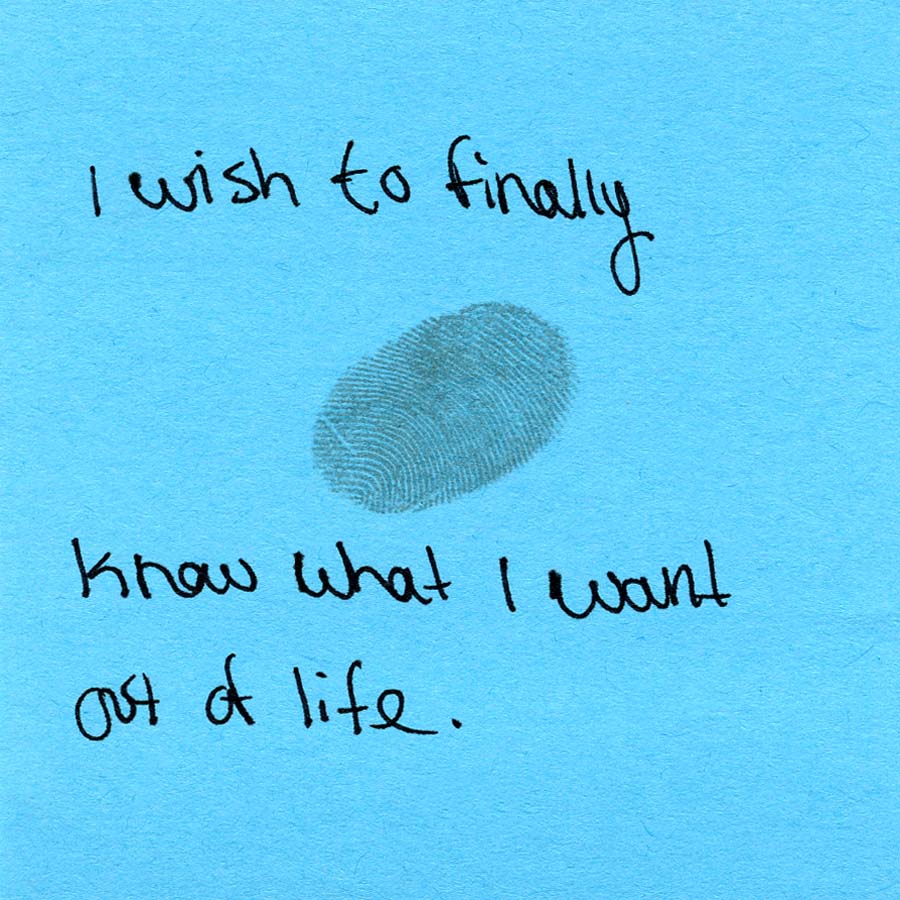 I wish to finally
know what I want
out of life.